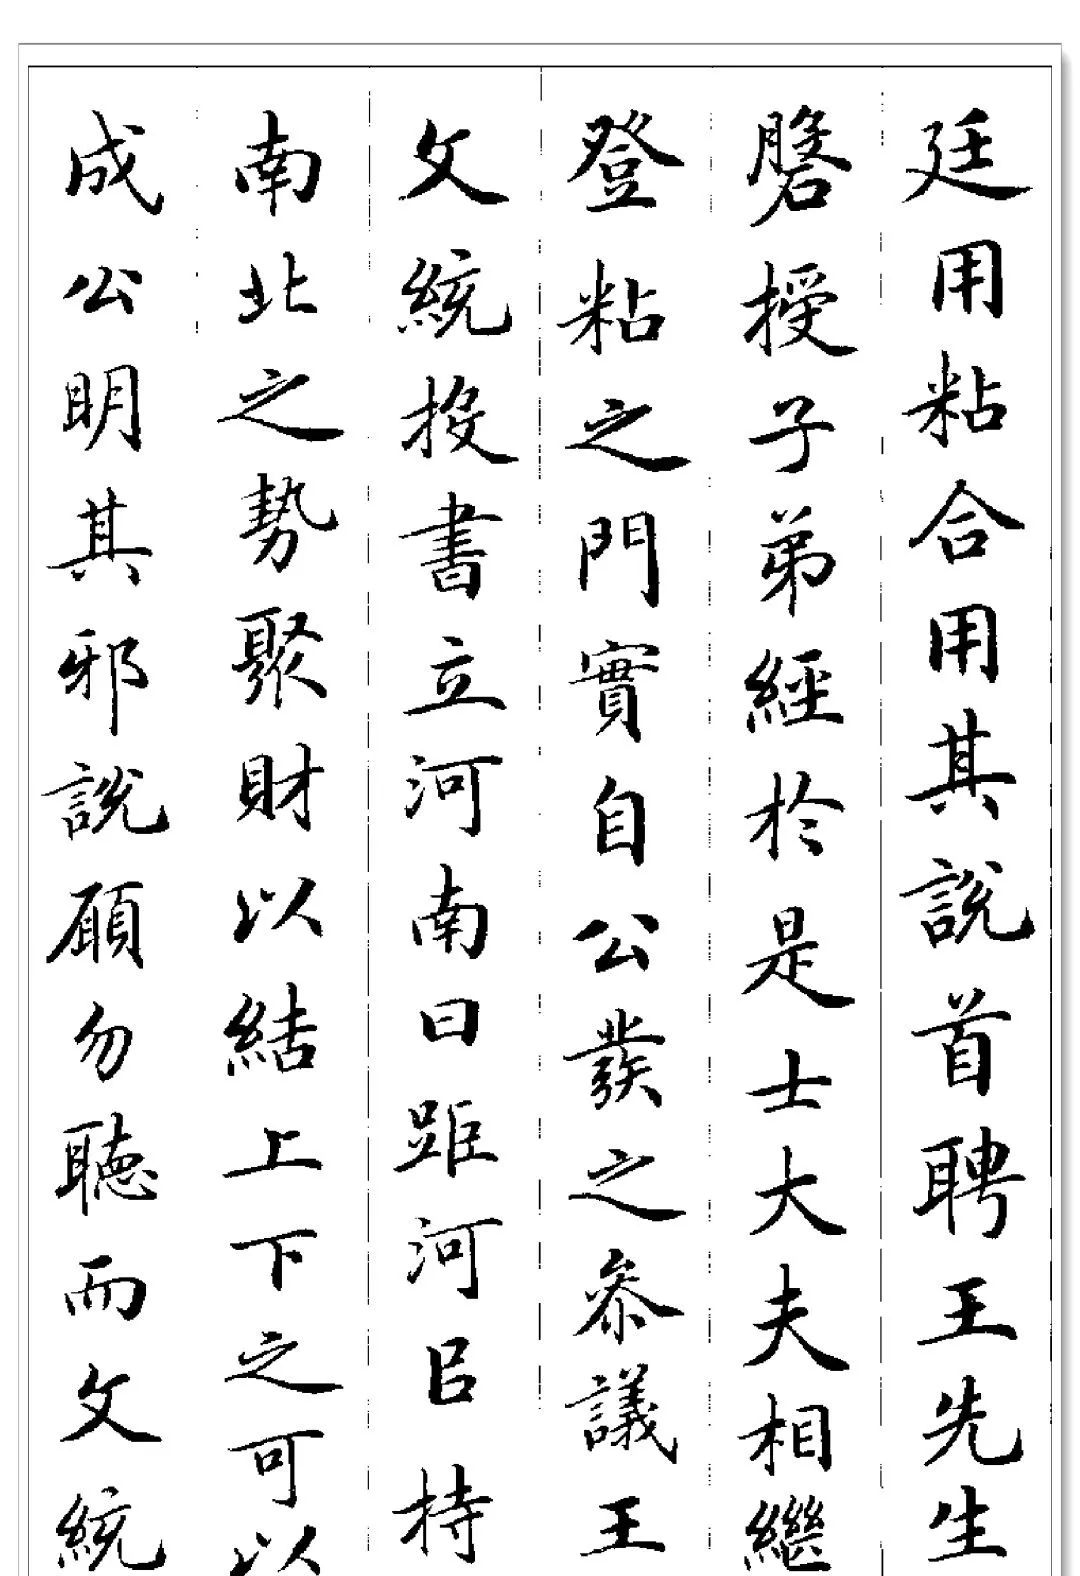 廷用粘合用其說首聘王先生
磐授子弟經於是士大夫相繼
登粘之門實自公發之叅議王
文統投書立河南曰距河呂持
南北之勢聚財以結上下之可以
成公明其邪說願勿聽而文統